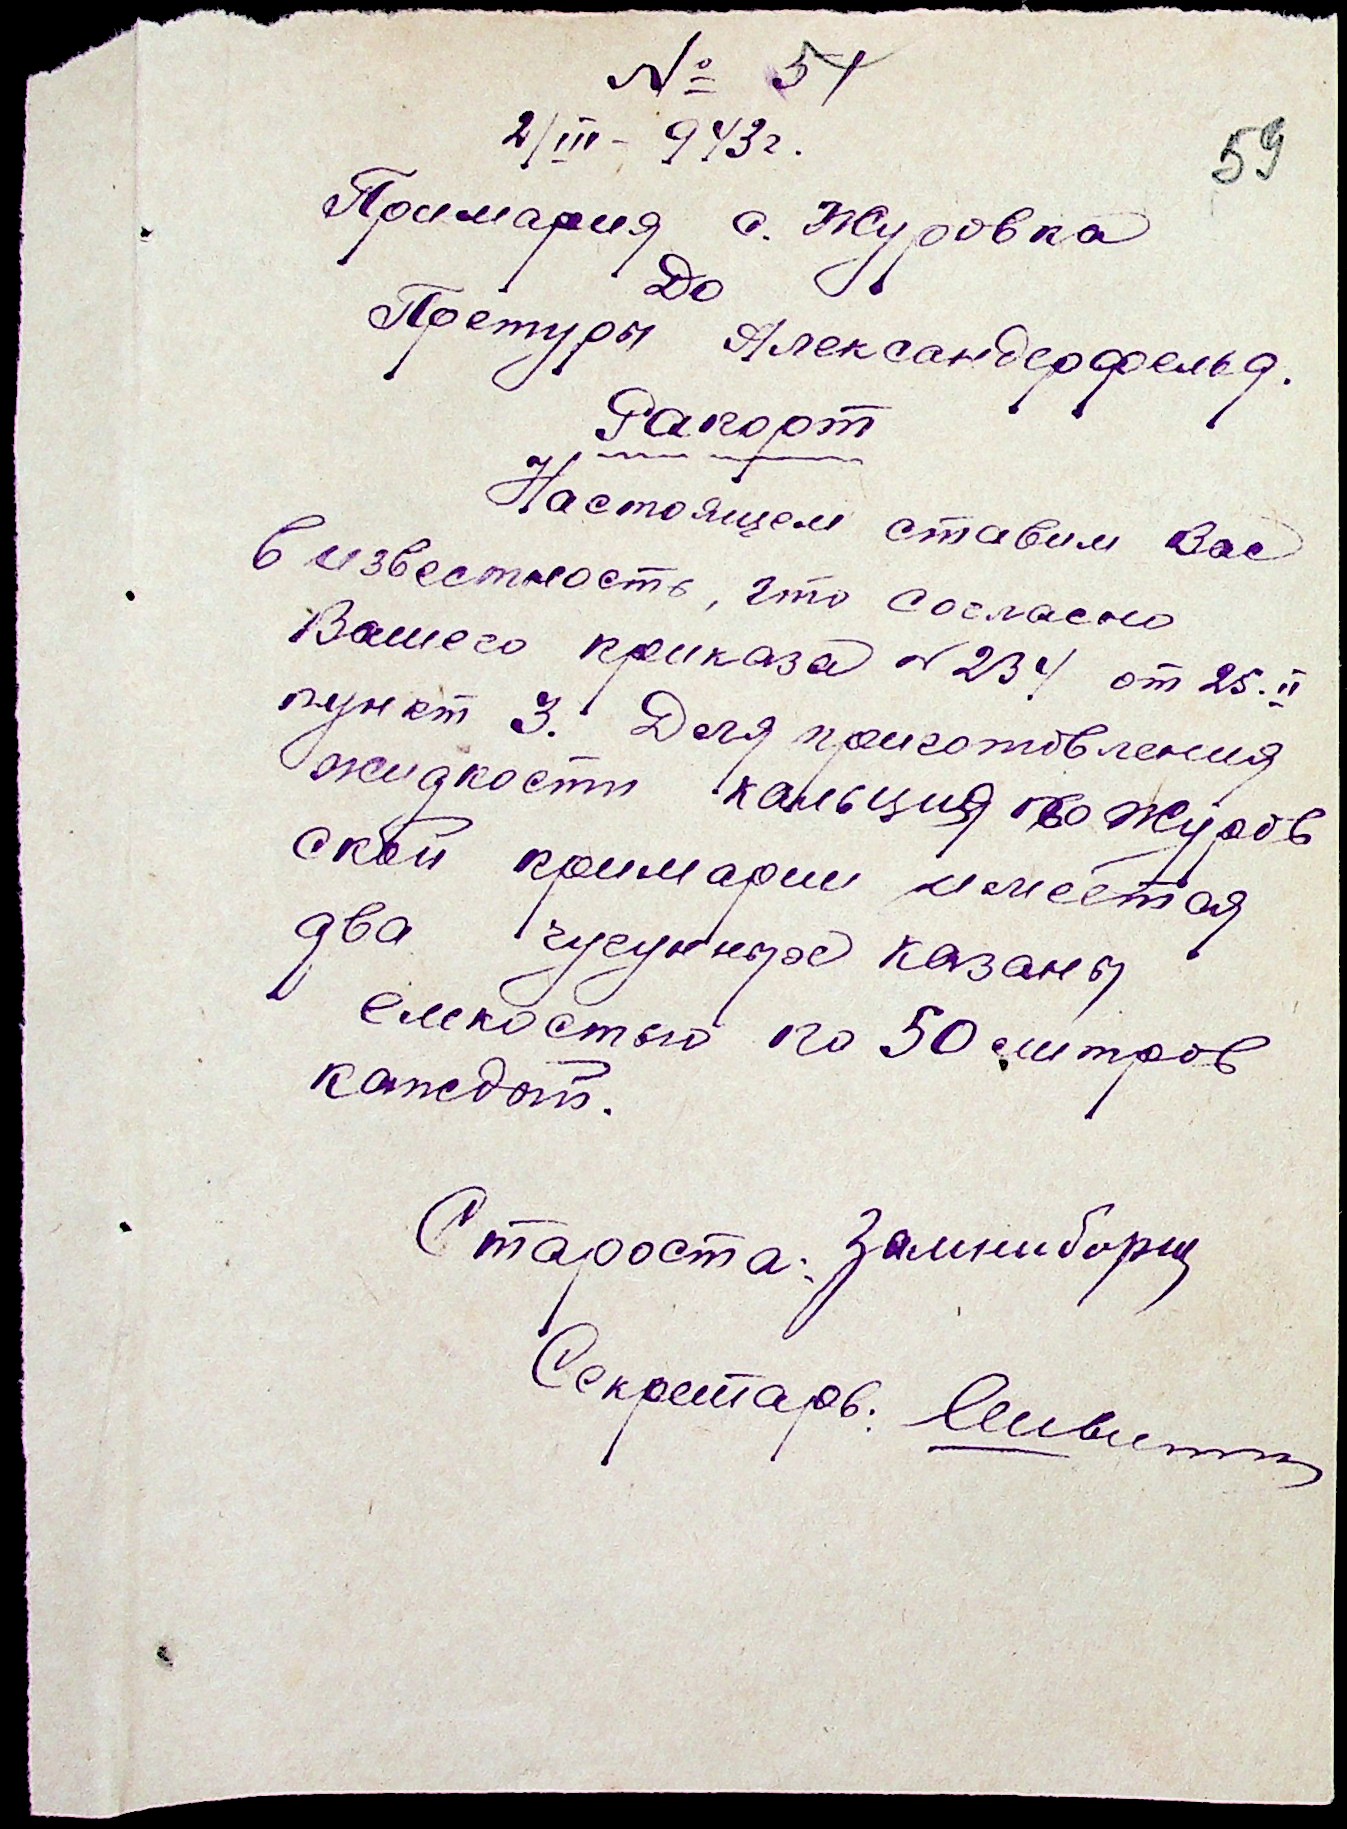 № 54
59
2/III - 943 г.
Примария с. Журовка
До
Претуры Александерфельд.
Рапорт
Настоящем ставим Вас
в известность, что согласно
Вашего приказа № 234 от 25.II
пункт 3. Для приготовления
жидкости кальция по Журов
ской примарии имеется
два чугунных казаны
емкостью по 50 литров
каждый.
Староста: Замниборщ
Секретарь: